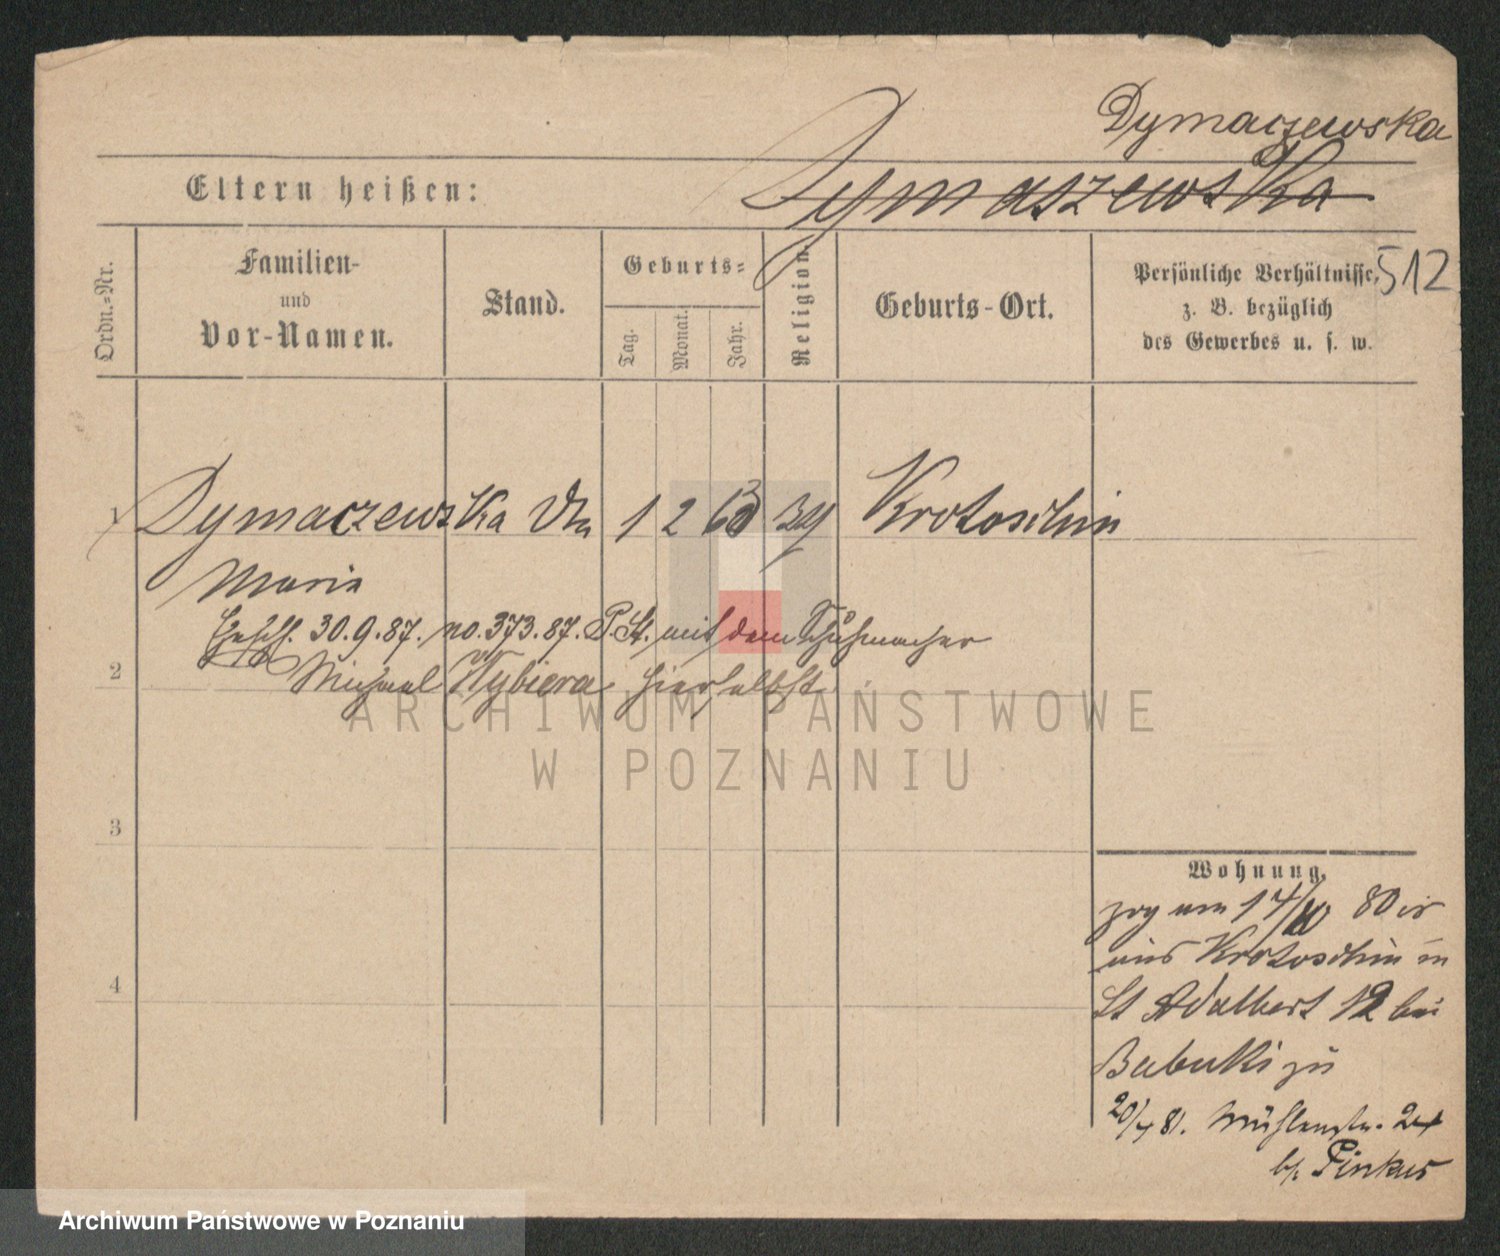 Dymaczewska
Eltern heißen: Dymaszewska
512
Ordn.-Nr.
Familien-
und
Vor-Namen.
Stand.
Geburts-
Tag.
Monat.
Jahr.
Religion.
Geburts-Ort.
Persönliche Verhältnisse,
z. B. bezüglich
des Gewerbes u. s. w.
1 Dymaczewska 1 2 63 Krotoschin
Maria
30.9.87. no. 373.87. P. St. mit dem Schuhmacher
2 Michael Wybiera hierselbst
3
4
Wohnung.
zog am 14/ 80
aus Krotoschin in
St Adalbert 12 bei
Babuki zu
20/4 81. Mühlenstr. 24
b/ Pinkus
ARCHIWUM PAŃSTWOWE
W POZNANIU
Archiwum Państwowe w Poznaniu